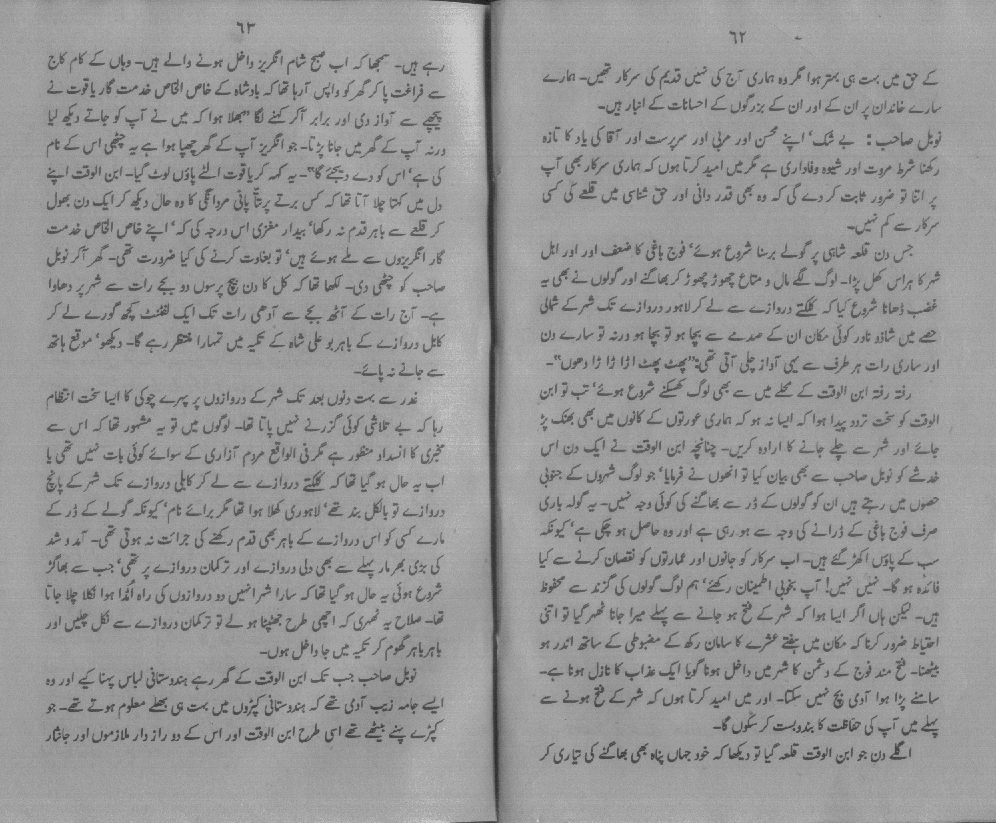 ۶۲
کے حق میں بہت ہی بہتر ہوا مگر وہ ہماری آج کی نہیں قدیم کی سرکار تھیں۔ ہمارے
سارے خاندان پر ان کے اور ان کے بزرگوں کے احسانات کے انبار ہیں۔
نوبل صاحب: بے شک، اپنے محسن اور مربی اور سرپرست اور آقا کی یاد کا تازہ
رکھنا شرط مروت اور شیوہ وفاداری ہے مگر میں امید کرتا ہوں کہ ہماری سرکار بھی آپ
پر اتنا تو ضرور ثابت کر دے گی کہ وہ بھی قدر دانی اور حق شناسی میں قلعے کی کسی
سرکار سے کم نہیں۔
جس دن قلعہ شاہی پر گولے برسنا شروع ہوئے، فوج باغی کا ضعف اور اور اہل
شہر کا ہراس کھل پڑا۔ لوگ لگے مال و متاع چھوڑ چھوڑ کر بھاگنے اور گولوں نے بھی یہ
غضب ڈھانا شروع کیا کہ کلکتے دروازے سے لے کر لاہور دروازے تک شہر کے شمالی
حصے میں شاذو نادر کوئی مکان ان کے صدمے سے بچا ہو تو بچا ہو ورنہ تو سارے دن
اور ساری رات ہر طرف سے یہی آواز چلی آتی تھی: "پھٹ پھٹ اڑا ڑا ڑا دھوں"۔
رفتہ رفتہ ابن الوقت کے محلے میں سے بھی لوگ کھسکنے شروع ہوئے، تب تو ابن
الوقت کو سخت تردد پیدا ہوا کہ ایسا نہ ہو کہ ہماری عورتوں کے کانوں میں بھی بھنک پڑ
جائے اور شہر سے چلے جانے کا ارادہ کریں۔ چنانچہ ابن الوقت نے ایک دن اس
خدشے کو نوبل صاحب سے بھی بیان کیا تو انھوں نے فرمایا، جو لوگ شہروں کے جنوبی
حصوں میں رہتے ہیں ان کو گولوں کے ڈر سے بھاگنے کی کوئی وجہ نہیں۔ یہ گولہ باری
صرف فوج باغی کے ڈرانے کی وجہ سے ہو رہی ہے اور وہ حاصل ہو چکی ہے، کیونکہ
سب کے پاؤں اکھڑ گئے ہیں۔ اب سرکار کو جانوں اور عمارتوں کو نقصان کرنے سے کیا
فائدہ ہو گا۔ نہیں نہیں! آپ بخوبی اطمینان رکھئے، ہم لوگ گولوں کی گزند سے محفوظ
ہیں۔ لیکن ہاں اگر ایسا ہوا کہ شہر کے فتح ہو جانے سے پہلے میرا جانا ٹھہر گیا تو اتنی
احتیاط ضرور کرنا کہ مکان میں ہفتے عشرے کا سامان رکھ کے مضبوطی کے ساتھ اندر ہو
بیٹھنا۔ فتح مند فوج کے دشمن کا شہر میں داخل ہونا گویا ایک عذاب کا نازل ہونا ہے۔
سامنے پڑا ہوا آدمی بچ نہیں سکتا۔ اور میں امید کرتا ہوں کہ شہر کے فتح ہونے سے
پہلے میں آپ کی حفاظت کا بندوبست کر سکوں گا۔
اگلے دن جو ابن الوقت قلعہ گیا تو دیکھا کہ خود جہاں پناہ بھی بھاگنے کی تیاری کر
۶۳
رہے ہیں۔ سمجھا کہ اب صبح شام انگریز داخل ہونے والے ہیں۔ وہاں کے کام کاج
سے فراغت پا کر گھر کو واپس آرہا تھا کہ بادشاہ کے خاص الخاص خدمت گار یاقوت نے
پیچھے سے آواز دی اور برابر آکر کہنے لگا "بھلا ہوا کہ میں نے آپ کو جاتے دیکھ لیا
ورنہ آپ کے گھر میں جانا پڑتا۔ جو انگریز آپ کے گھر چھپا ہوا ہے یہ چٹھی اس کے نام
کی ہے، اس کو دے دیجئے گا"۔ یہ کہہ کر یاقوت الٹے پاؤں لوٹ گیا۔ ابن الوقت اپنے
دل میں کہتا چلا آتا تھا کہ کس برتے پر تتا پانی مردانگی کا وہ حال دیکھ کر ایک دن بھول
کر قلعے سے باہر قدم نہ رکھا، بیدار مغزی اس درجہ کی کہ، اپنے خاص الخاص خدمت
گار انگریزوں سے ملے ہوئے ہیں، تو بغاوت کرنے کی کیا ضرورت تھی۔ گھر آکر نوبل
صاحب کو چٹھی دی۔ لکھا تھا کہ کل کا دن بیچ پرسوں دو بجے رات سے شہر پر دھاوا
ہے۔ آج رات کے آٹھ بجے سے آدھی رات تک ایک لفٹنٹ کچھ گورے لے کر
کابل دروازے کے باہر بو علی شاہ کے تکیہ میں تمہارا منتظر رہے گا۔ دیکھو، موقع ہاتھ
سے جانے نہ پائے۔
غدر سے بہت دنوں بعد تک شہر کے دروازوں پر پہرے چوکی کا ایسا سخت انتظام
رہا کہ بے تلاشی کوئی گزرنے نہیں پاتا تھا۔ لوگوں میں تو یہ مشہور تھا کہ اس سے
مخبری کا انسداد منظور ہے مگر فی الواقع مردم آزاری کے سوائے کوئی بات نہیں تھی یا
اب یہ حال ہو گیا تھا کہ کلکتے دروازے سے لے کر کابلی دروازے تک شہر کے پانچ
دروازے تو بالکل بند تھے، لاہوری کھلا ہوا تھا مگر برائے نام، کیونکہ گولے کے ڈر کے
مارے کسی کو اس دروازے کے باہر بھی قدم رکھنے کی جرات نہ ہوتی تھی۔ آمد و شد
کی بڑی بھر مار پہلے سے بھی دلی دروازے اور ترکمان دروازے پر تھی، جب سے بھاگڑ
شروع ہوئی یہ حال ہو گیا تھا کہ سارا شہر انہیں دو دروازوں کی راہ اُمڈا ہوا نکلا چلا جاتا
تھا۔ صلاح یہ ٹھہری کہ اچھی طرح جھٹپٹا ہو لے تو ترکمان دروازے سے نکل چلیں اور
باہر باہر گھوم کر تکیہ میں جا داخل ہوں۔
نوبل صاحب جب تک ابن الوقت کے گھر رہے ہندوستانی لباس پہنا کیے اور وہ
ایسے جامہ زیب آدمی تھے کہ ہندوستانی کپڑوں میں بہت ہی بھلے معلوم ہوتے تھے۔ جو
کپڑے پہنے بیٹھے تھے اسی طرح ابن الوقت اور اس کے دو راز دار ملازموں اور جانثار